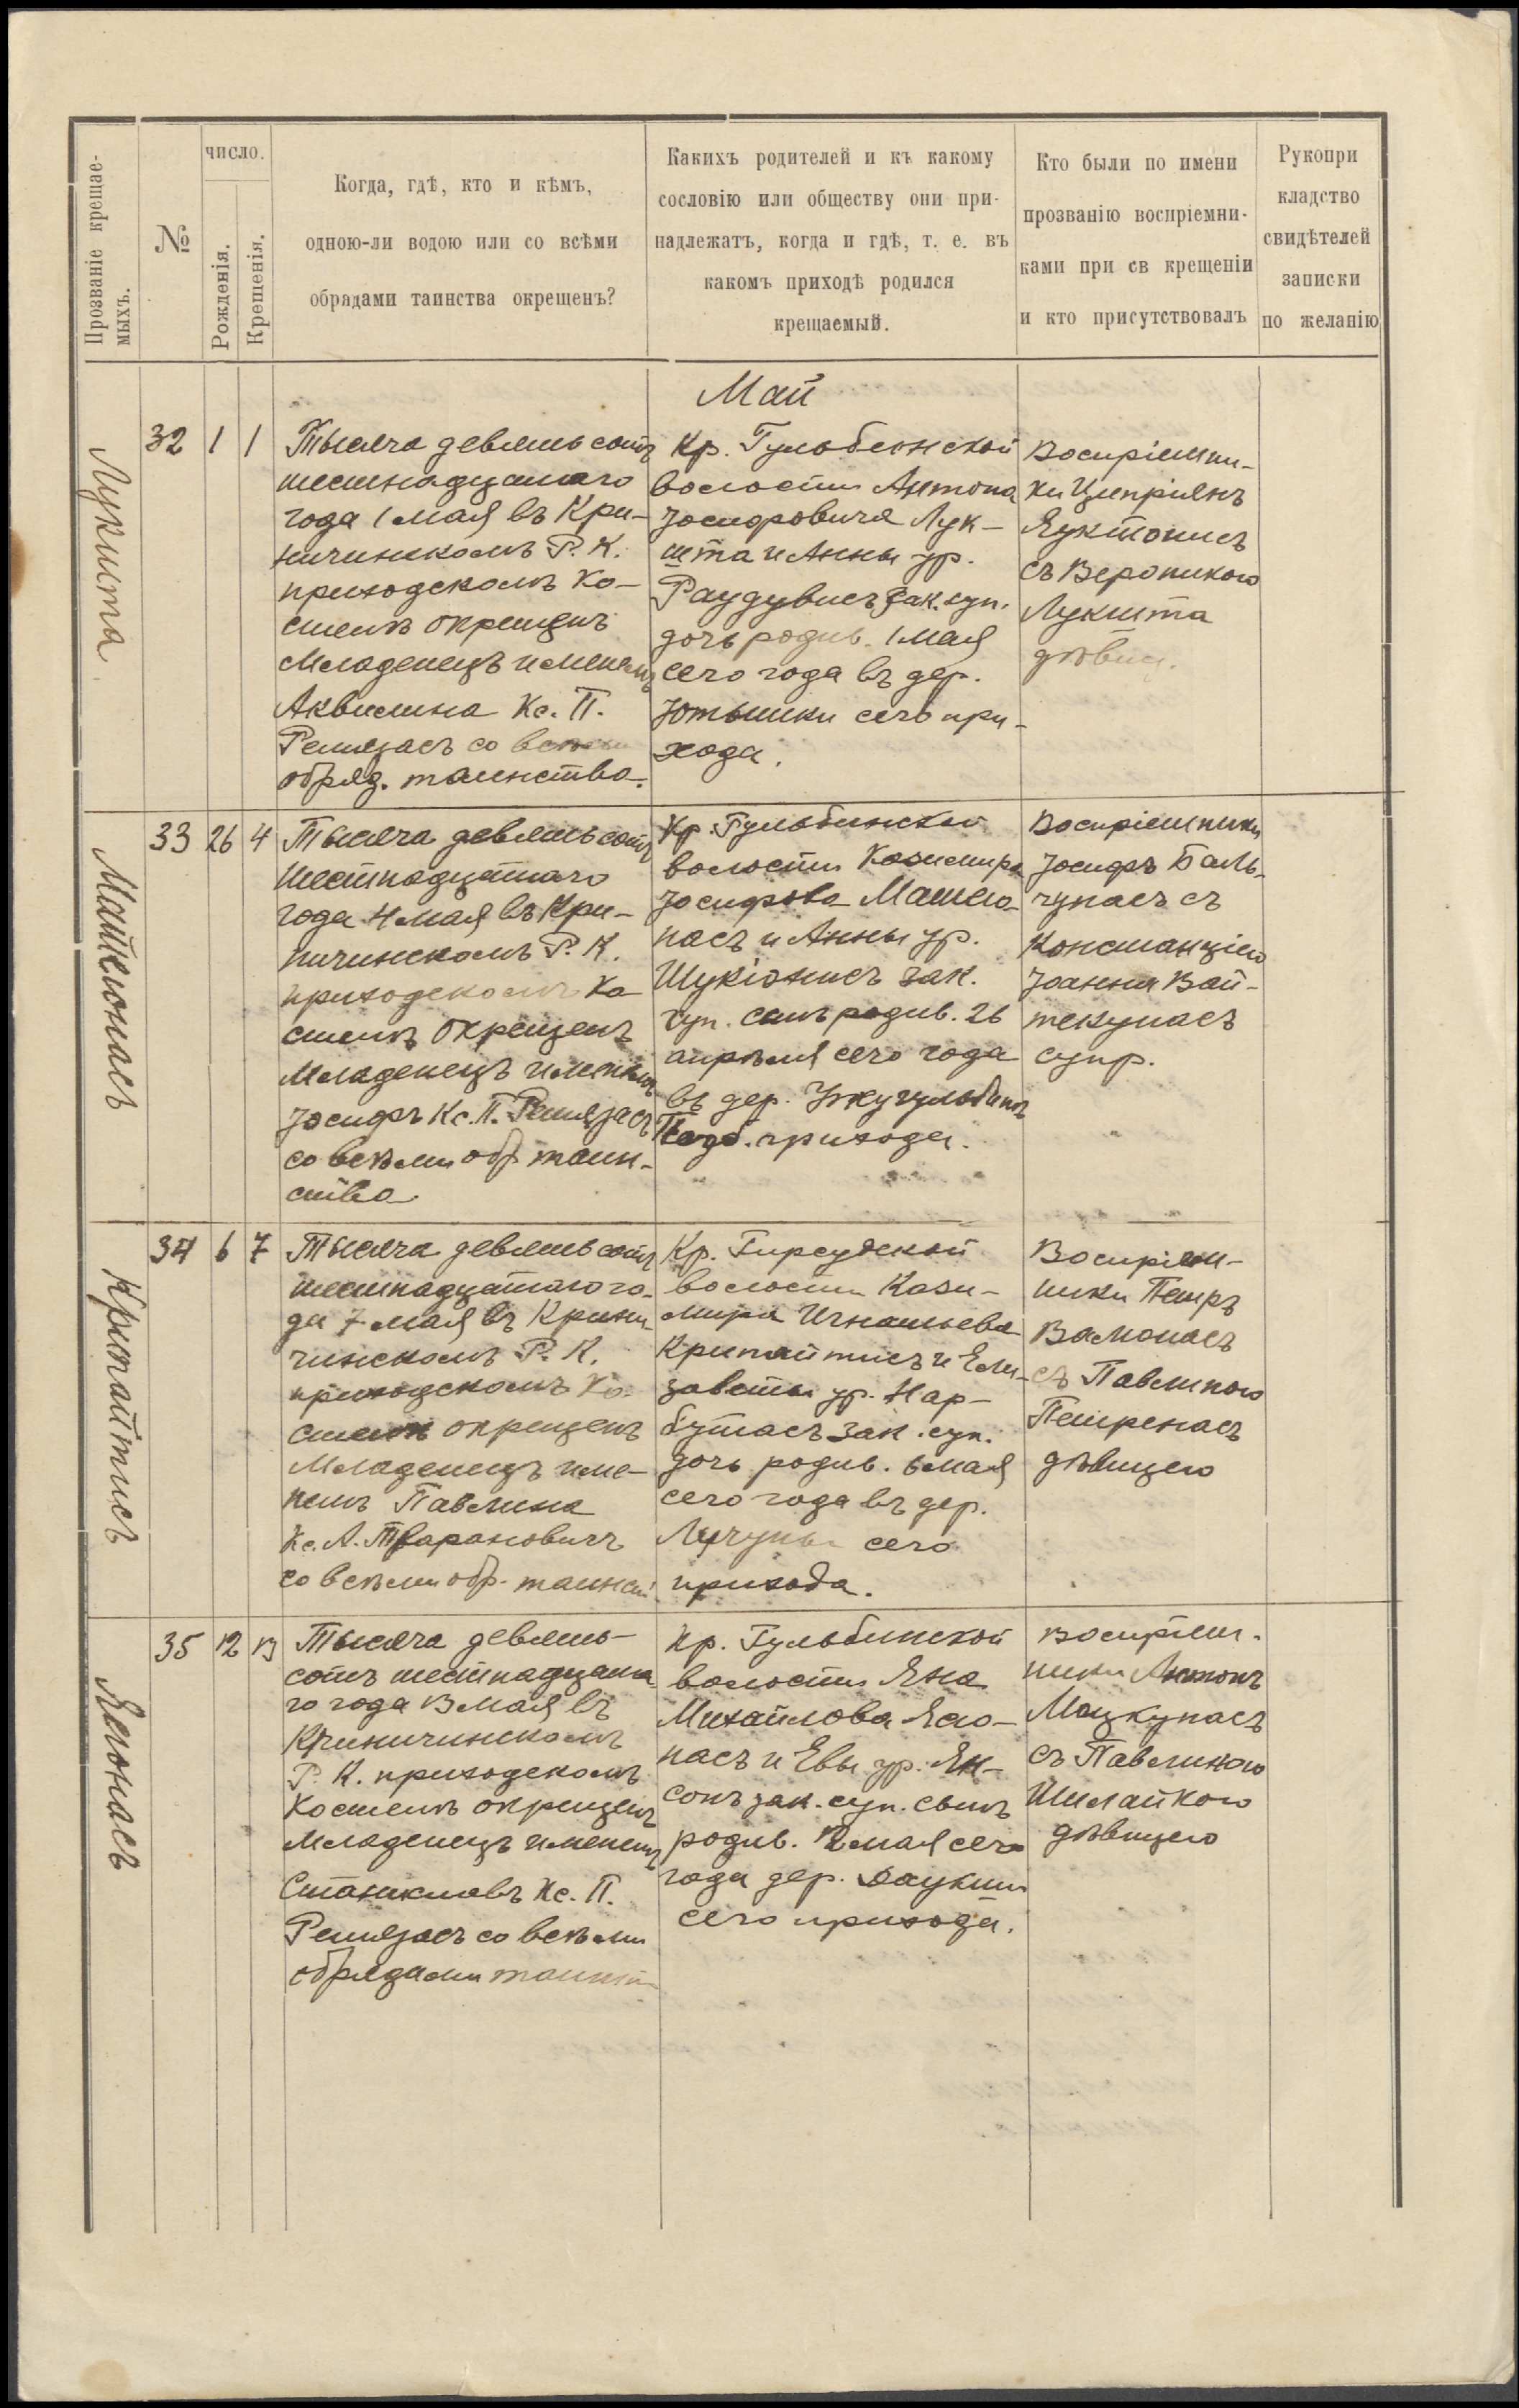 Прозваніе крещае-
мыхъ.
№
число.
Рожденія.
Крещенія.
Когда, гдѣ, кто и кѣмъ,
одною-ли водою или со всѣми
обрядами таинства окрещенъ?
Какихъ родителей и къ какому
сословію или обществу они при-
надлежатъ, когда и гдѣ, т. е. въ
какомъ приходѣ родился
крещаемый.
Кто были по имени
прозванію воспріемни-
ками при св крещеніи
и кто присутствовалъ
Рукопри
кладство
свидѣтелей
записки
по желанію
Май
Лукшта
32
1
1
Тысяча девятьсотъ
шестнадцатаго
года 1 мая въ Кри-
ничинскомъ Р. К.
приходскомъ Ко-
стелѣ окрещенъ
Младенецъ именемъ
Аквилина Кс. П.
Ремязасъ со всѣми
обряд. таинства.
Кр. Гульбинской
волости Антона
Іосифовича Лук-
шта и Анны ур.
Раудувисъ зак. суп.
дочь родив. 1 мая
сего года въ дер.
сего при-
хода.
Воспріемни-
ки Ципріянъ
съ Вероникою
Лукшта
дѣвиц.
Матеюнасъ
33
26
4
Тысяча девятьсотъ
Шестнадцатаго
года 4 мая въ Кри-
ничинскомъ Р. К.
приходскомъ Ко
стелѣ окрещенъ
Младенецъ именемъ
Іосифъ Кс. П. Ремязасъ
со всѣми обр таин-
ства
Кр. Гульбинской
волости Казимира
Іосифова Матею-
насъ и Анны ур.
Шукіонисъ зак.
суп. сынъ родив. 26
апрѣля сего года
въ дер. Ужугульбинъ
прихода.
Воспріемники
Іосифъ Баль-
чунасъ съ
Констанціею
Іоанна Вай-
текунасъ
супр.
Крипайтисъ
34
6
7
Тысяча девятьсотъ
шестнадцатаго го-
да 7 мая въ Крини
чинскомъ Р. К.
приходскомъ Ко-
стелѣ окрещенъ
Младенецъ име-
немъ Павлина
Кс. А. Тварановичъ
со всѣми обр. таинст.
Кр. Гирсудской
волости Кази-
мира Игнатьева
Крипайтисъ и Ели-
заветы ур. Нар-
бутасъ зак. суп.
дочь родив. 6 мая
сего года въ дер.
сего
прихода.
Воспріем-
ники Петръ
Вамонасъ
съ Павлиною
Петренасъ
дѣвицею
Яюнасъ
35
12
13
Тысяча девять-
сотъ шестнадцата
го года 13 мая въ
Криничинскомъ
Р. К. приходскомъ
Костелѣ окрещенъ
Младенецъ именемъ
Станиславъ Кс. П.
Ремязасъ со всѣми
обрядами таинст
Кр. Гульбинской
волости Яна
Михайлова Яю-
насъ и Евы ур. Ян-
сонъ зак. суп. сынъ
родив. 12 мая сего
года дер. Даукши
сего прихода.
Воспріем-
ники Антонъ
Мацкунасъ
съ Павлиною
Шилайкою
дѣвицею